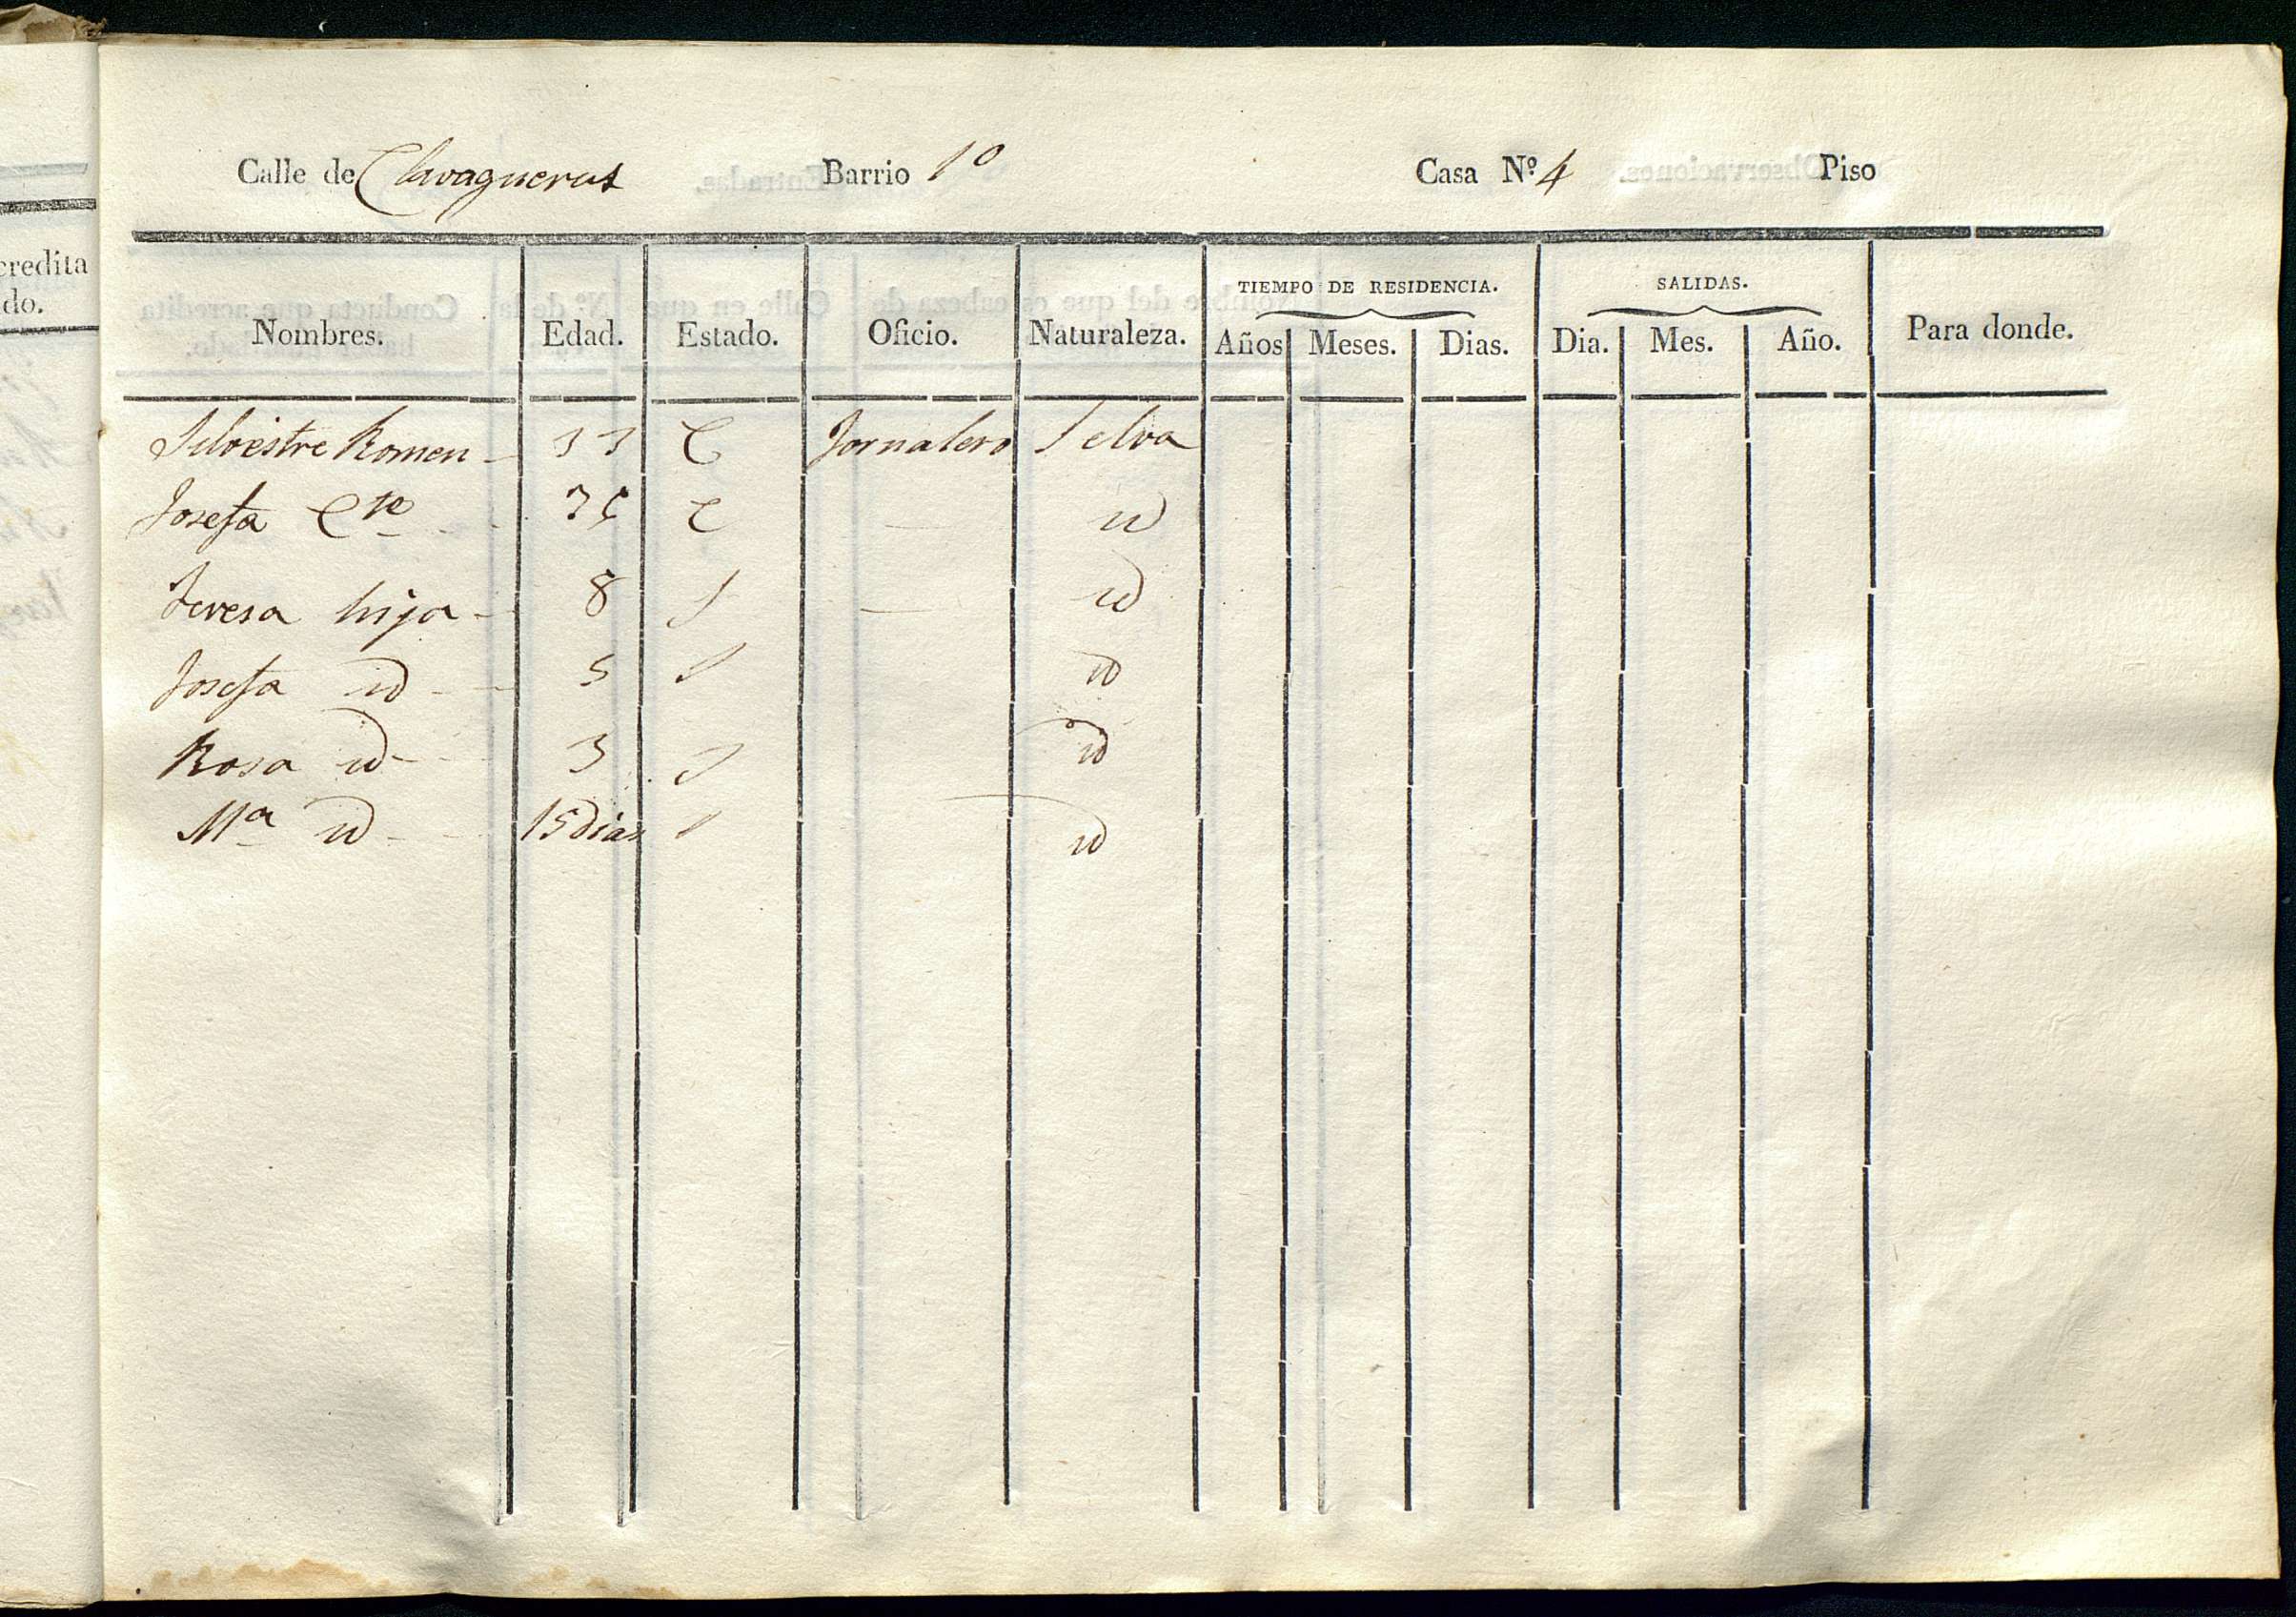 credita
do.
Calle de Clavagueras Barrio 1º Casa Nº 4 Piso
Nombres. Edad. Estado. Oficio. Naturaleza. TIEMPO DE RESIDENCIA. Años Meses. Dias. SALIDAS. Dia. Mes. Año. Para donde.
Silvestre Romeu 33 C Jornalero Selva
Josefa 35 C id
Teresa hija 8 S id
Josefa id 5 S id
Rosa id 3 S id
Mª id 15 dias S id